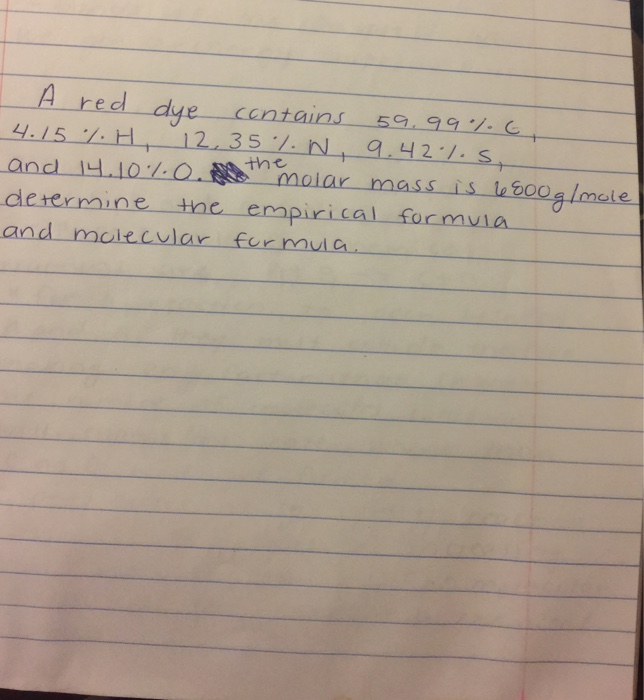 A red dye contains 59.99% C,
4.15 % H, 12.35 % N, 9.42 % S,
and 14.10% O. the molar mass is 6800g/mole
determine the empirical formula
and molecular formula.